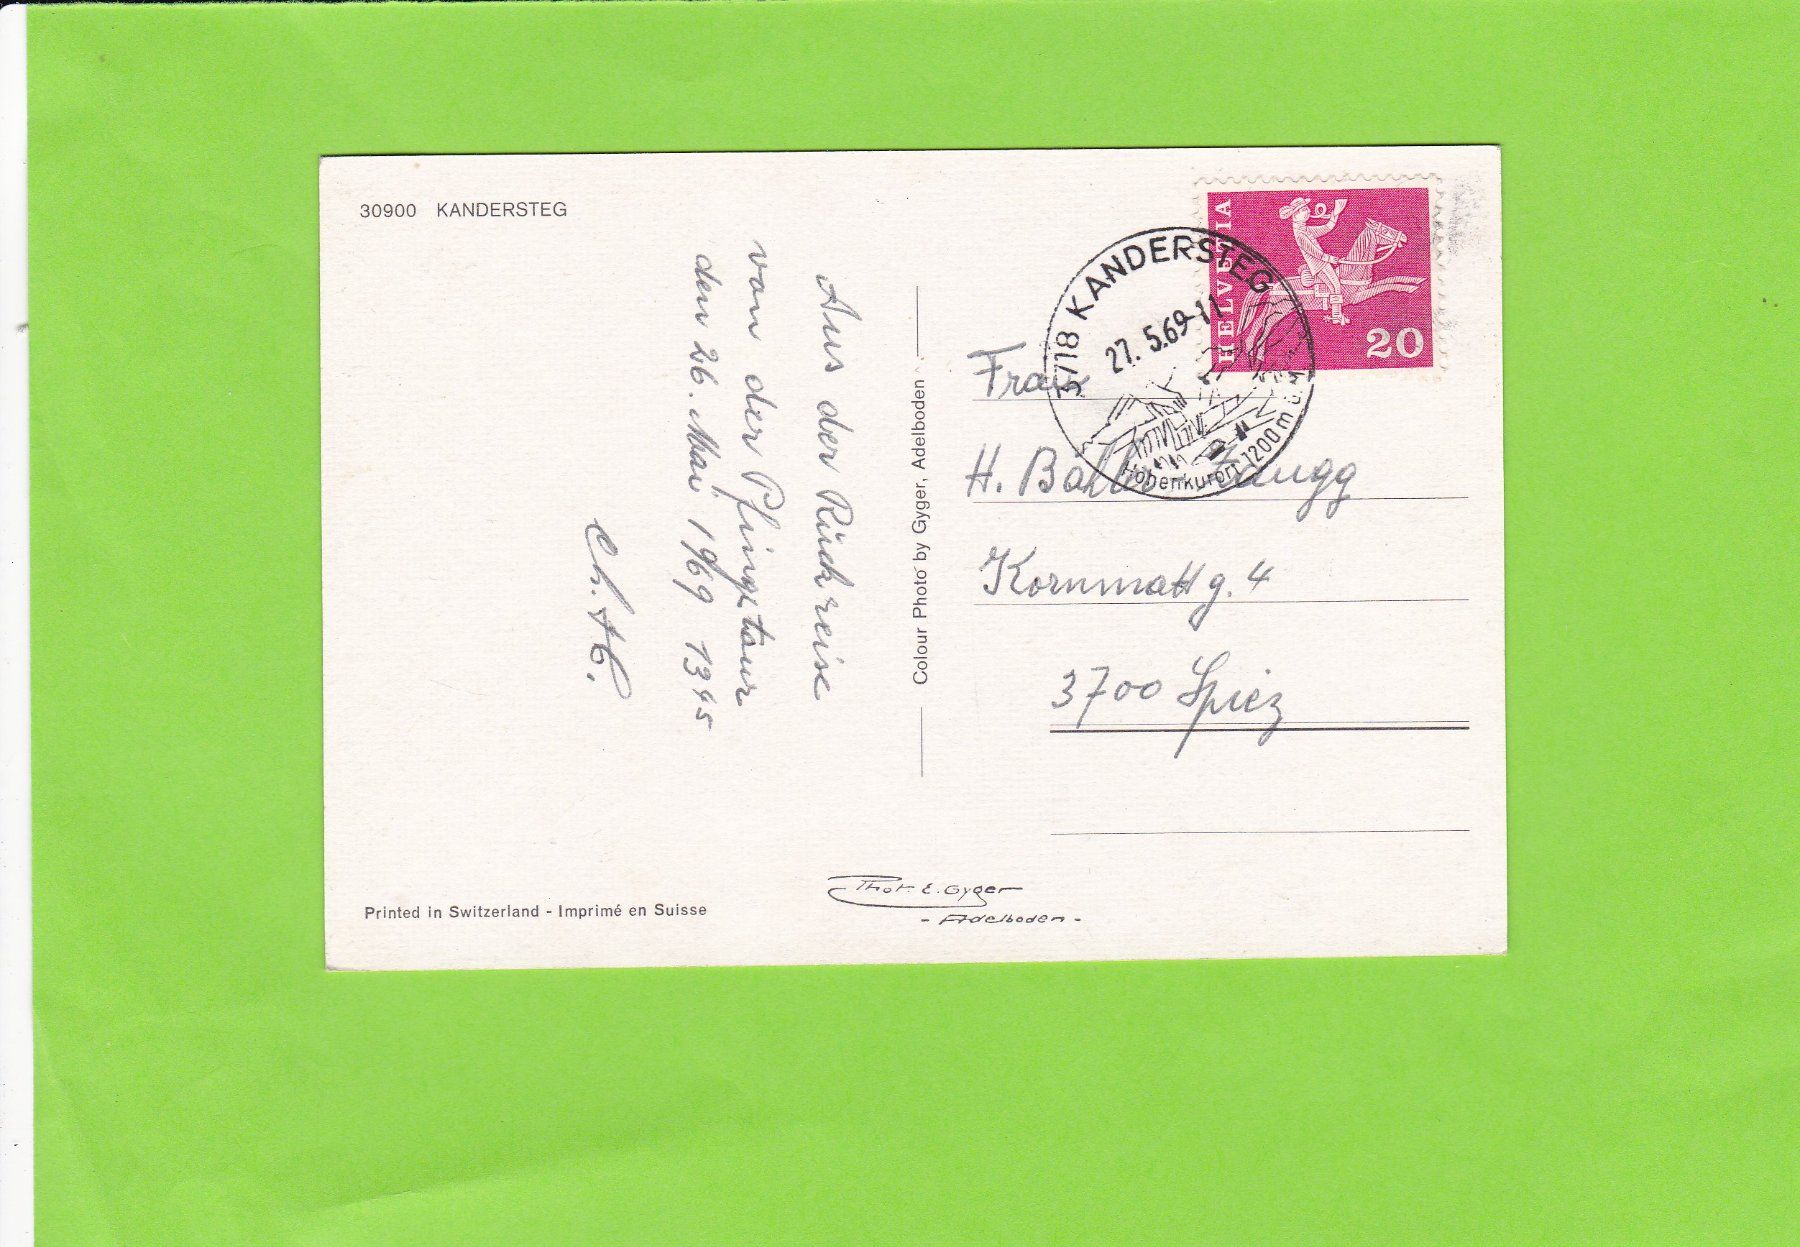 30900 KANDERSTEG
Aus der Rückreise
von der Pfingsttour
den 26. Mai 1969 1345
Ch. H.
Colour Photo by Gyger, Adelboden
HELVETIA
20
3718 KANDERSTEG
27. 5.69-11
Höhenkurort 1200 m ü. M.
Frau
H. Bähler-Zaugg
Kornmattg. 4
3700 Spiez
Phot. E. Gyger
- Adelboden -
Printed in Switzerland - Imprimé en Suisse